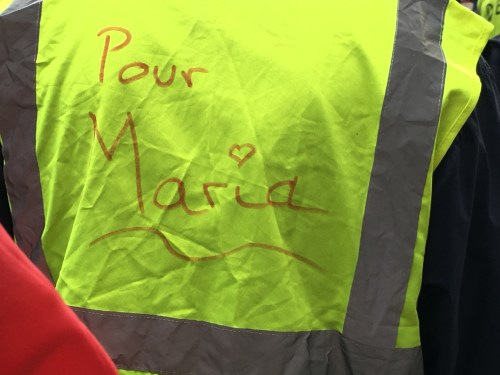 Pour
Maria